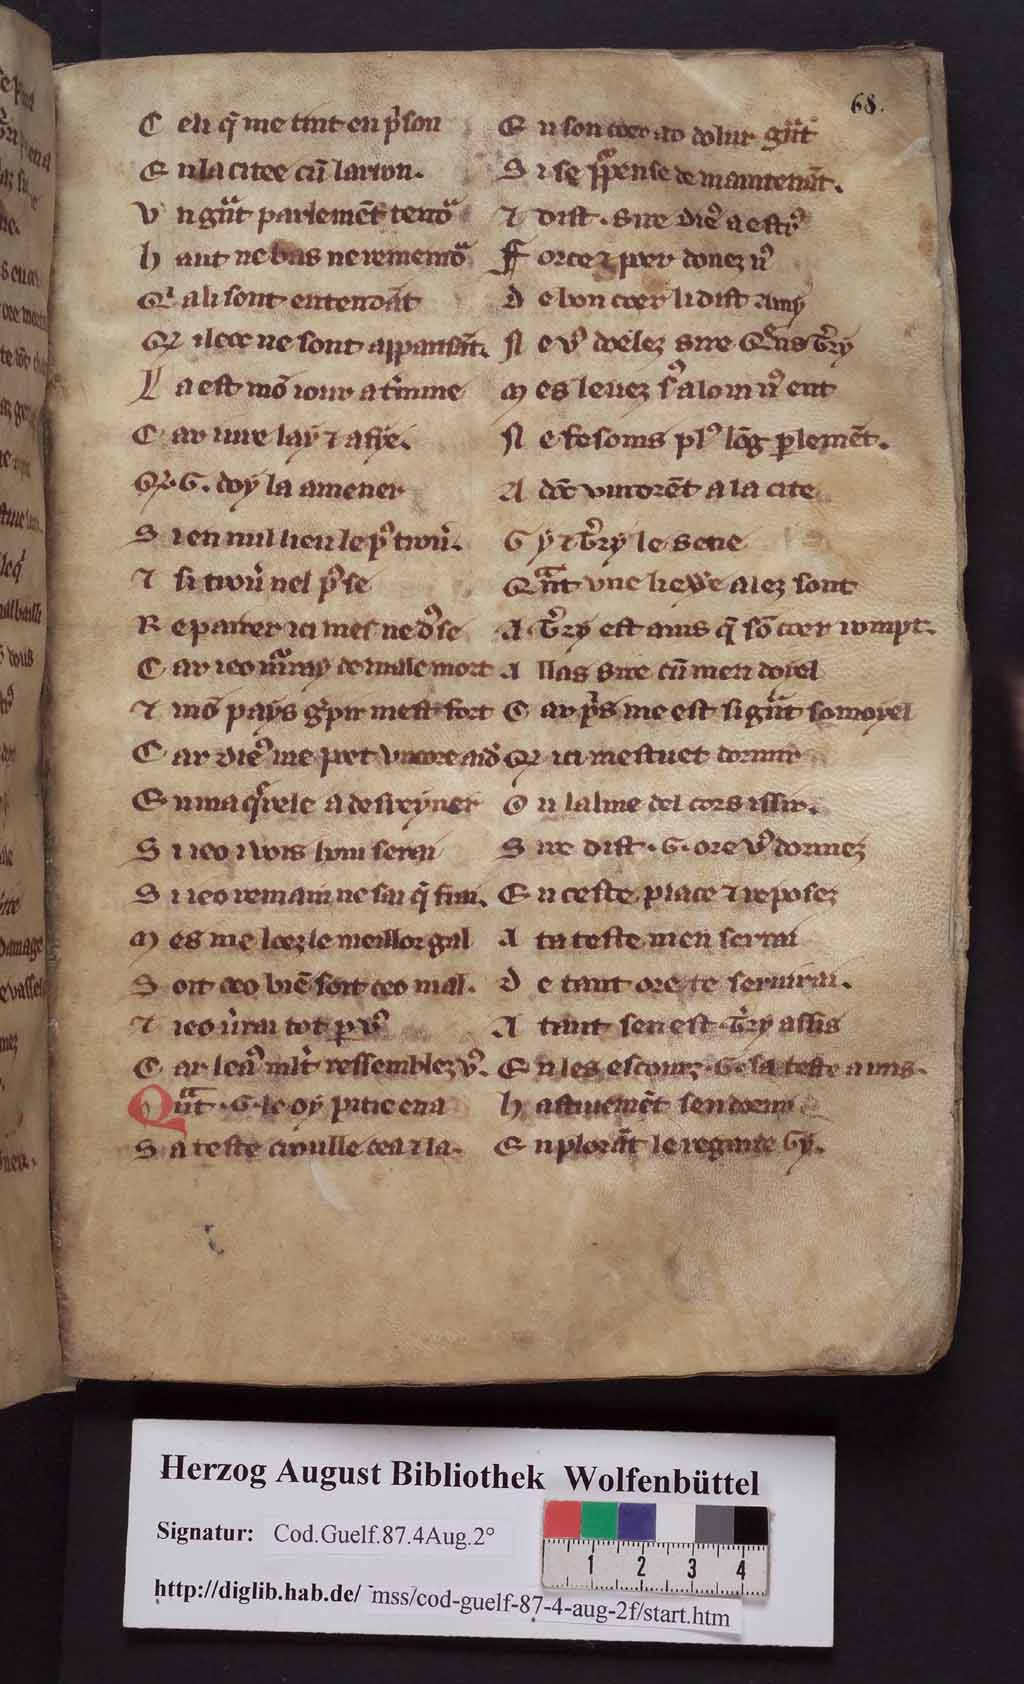 68.
C eli q̃ me tint en pͥson
E n la citee cũ larron.
V n gnͣt parlemẽt tendͣ
h aut ne bas ne remendͣ
Qͥ ali sont entendãt
Qͥ ilece ne sont apparisãt.
L a est mõ iour a tͥmine
C ar iure lay ⁊ afye.
Qͥ .G. doy la amener
S i en nul lieu le pͥ trouũ.
⁊ si trouũ nel pͥse
R epairer ici mes ne dͥse
C ar ieo mͣray de male mort
⁊ mõ pays gͥpir mest fort
C ar dieͥ me pet vncore aidͥ
E n ma qͥrele a desreyner
S i ieo i vois honi serai
S i ieo remain ne sai q̃ frai.
M es me loez le meillor gal
S oit ceo biẽ soit ceo mal.
⁊ ieo irai tot p vͥ
C ar leaͥ mlt̃ ressemblez vͥ.
Qͣnt .G. le oy pitie en a
S a teste croulle cea ⁊ la.
E n son coer ad dolur gnͣt
S i se pͥpense de maintenãt.
⁊ dist .sire dieͥ a estͥ
F orce ⁊ poer donez nͥ
D e bon coer li dist Amy
N e vͥ doelez sire Qͥns Tͥry
M es leuez sͥ alom nͥ ent
N e fesoms plͥ lõg plemẽt.
A doͨ virorẽt a la cite
G y ⁊ Tͥry le sene
Qͣnt vne liewe alez sont
A Tͥry est auis q̃ sõ coer rompt.
A llas sire cũ men doiel
C ar pͥs me est si gnͣt somoyel
Qͥ ici mestuet dormir
O u lalme del cors issir.
S ire dist .G. ore vͥ dormez
E n ceste place ⁊ reposez
A ta teste men serrai
D e tant ore te seruirai.
A tant sen est Tͥry assis
E n les escourz .G. sa teste a mis.
h astiuemẽt sen dormi
E n plorãt le regarde Gy.
Herzog August Bibliothek Wolfenbüttel
Signatur: Cod.Guelf.87.4Aug.2°
1 2 3 4
http://diglib.hab.de/ mss/cod-guelf-87-4-aug-2f/start.htm